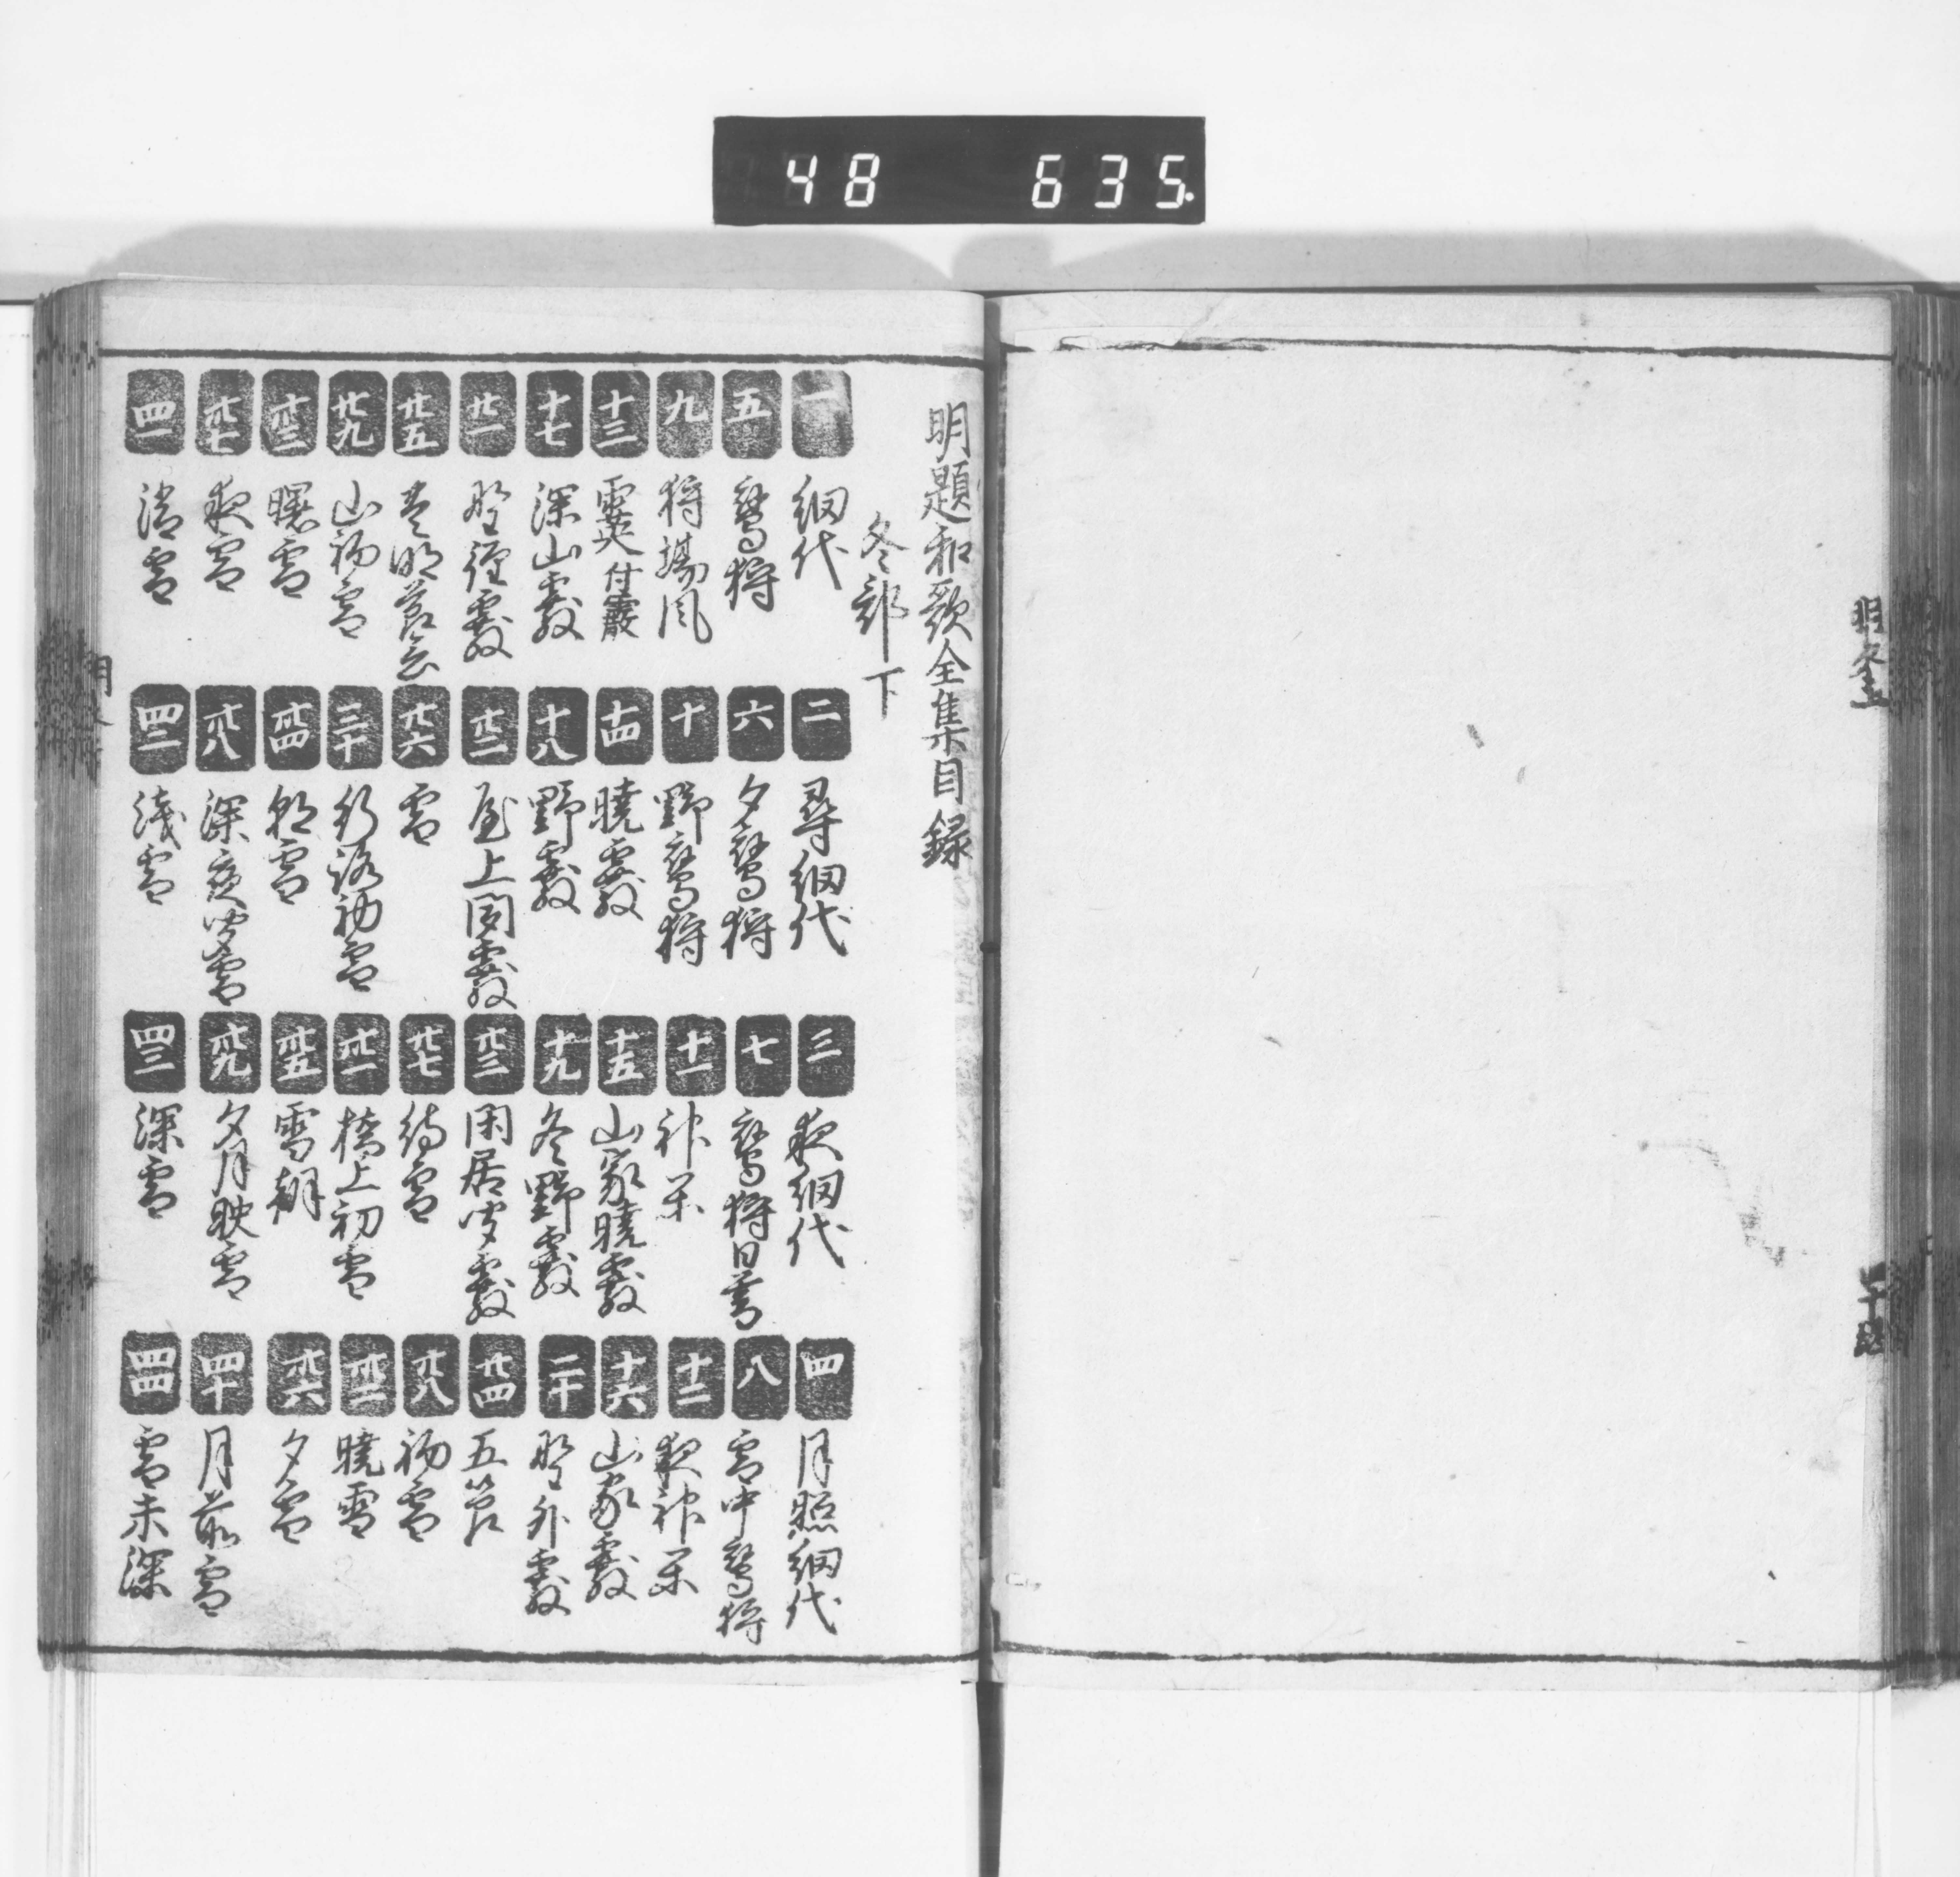 48 635
明題和歌全集目録
冬部下
一 網代
二 尋網代
三 夜網代
四 月照網代
五 鷹狩
六 夕鷹狩
七 鷹狩日暮
八 雪中鷹狩
九 狩場風
十 野鷹狩
十一 神楽
十二 夜神楽
十三 霙 付霰
十四 暁霰
十五 山家暁霰
十六 山家霰
十七 深山霰
十八 野霰
十九 冬野霰
二十 野外霰
廿一 野径霰
廿二 屋上聞霰
廿三 閑居聞霰
廿四 五節
廿五 豊明節会
廿六 雪
廿七 待雪
廿八 初雪
廿九 山初雪
三十 行路初雪
卅一 橋上初雪
卅二 暁雪
卅三 曙雪
卅四 朝雪
卅五 雪朝
卅六 夕雪
卅七 夜雪
卅八 深夜聞雪
卅九 夕月映雪
四十 月前雪
四一
四二 浅雪
四三 深雪
四四 雪未深